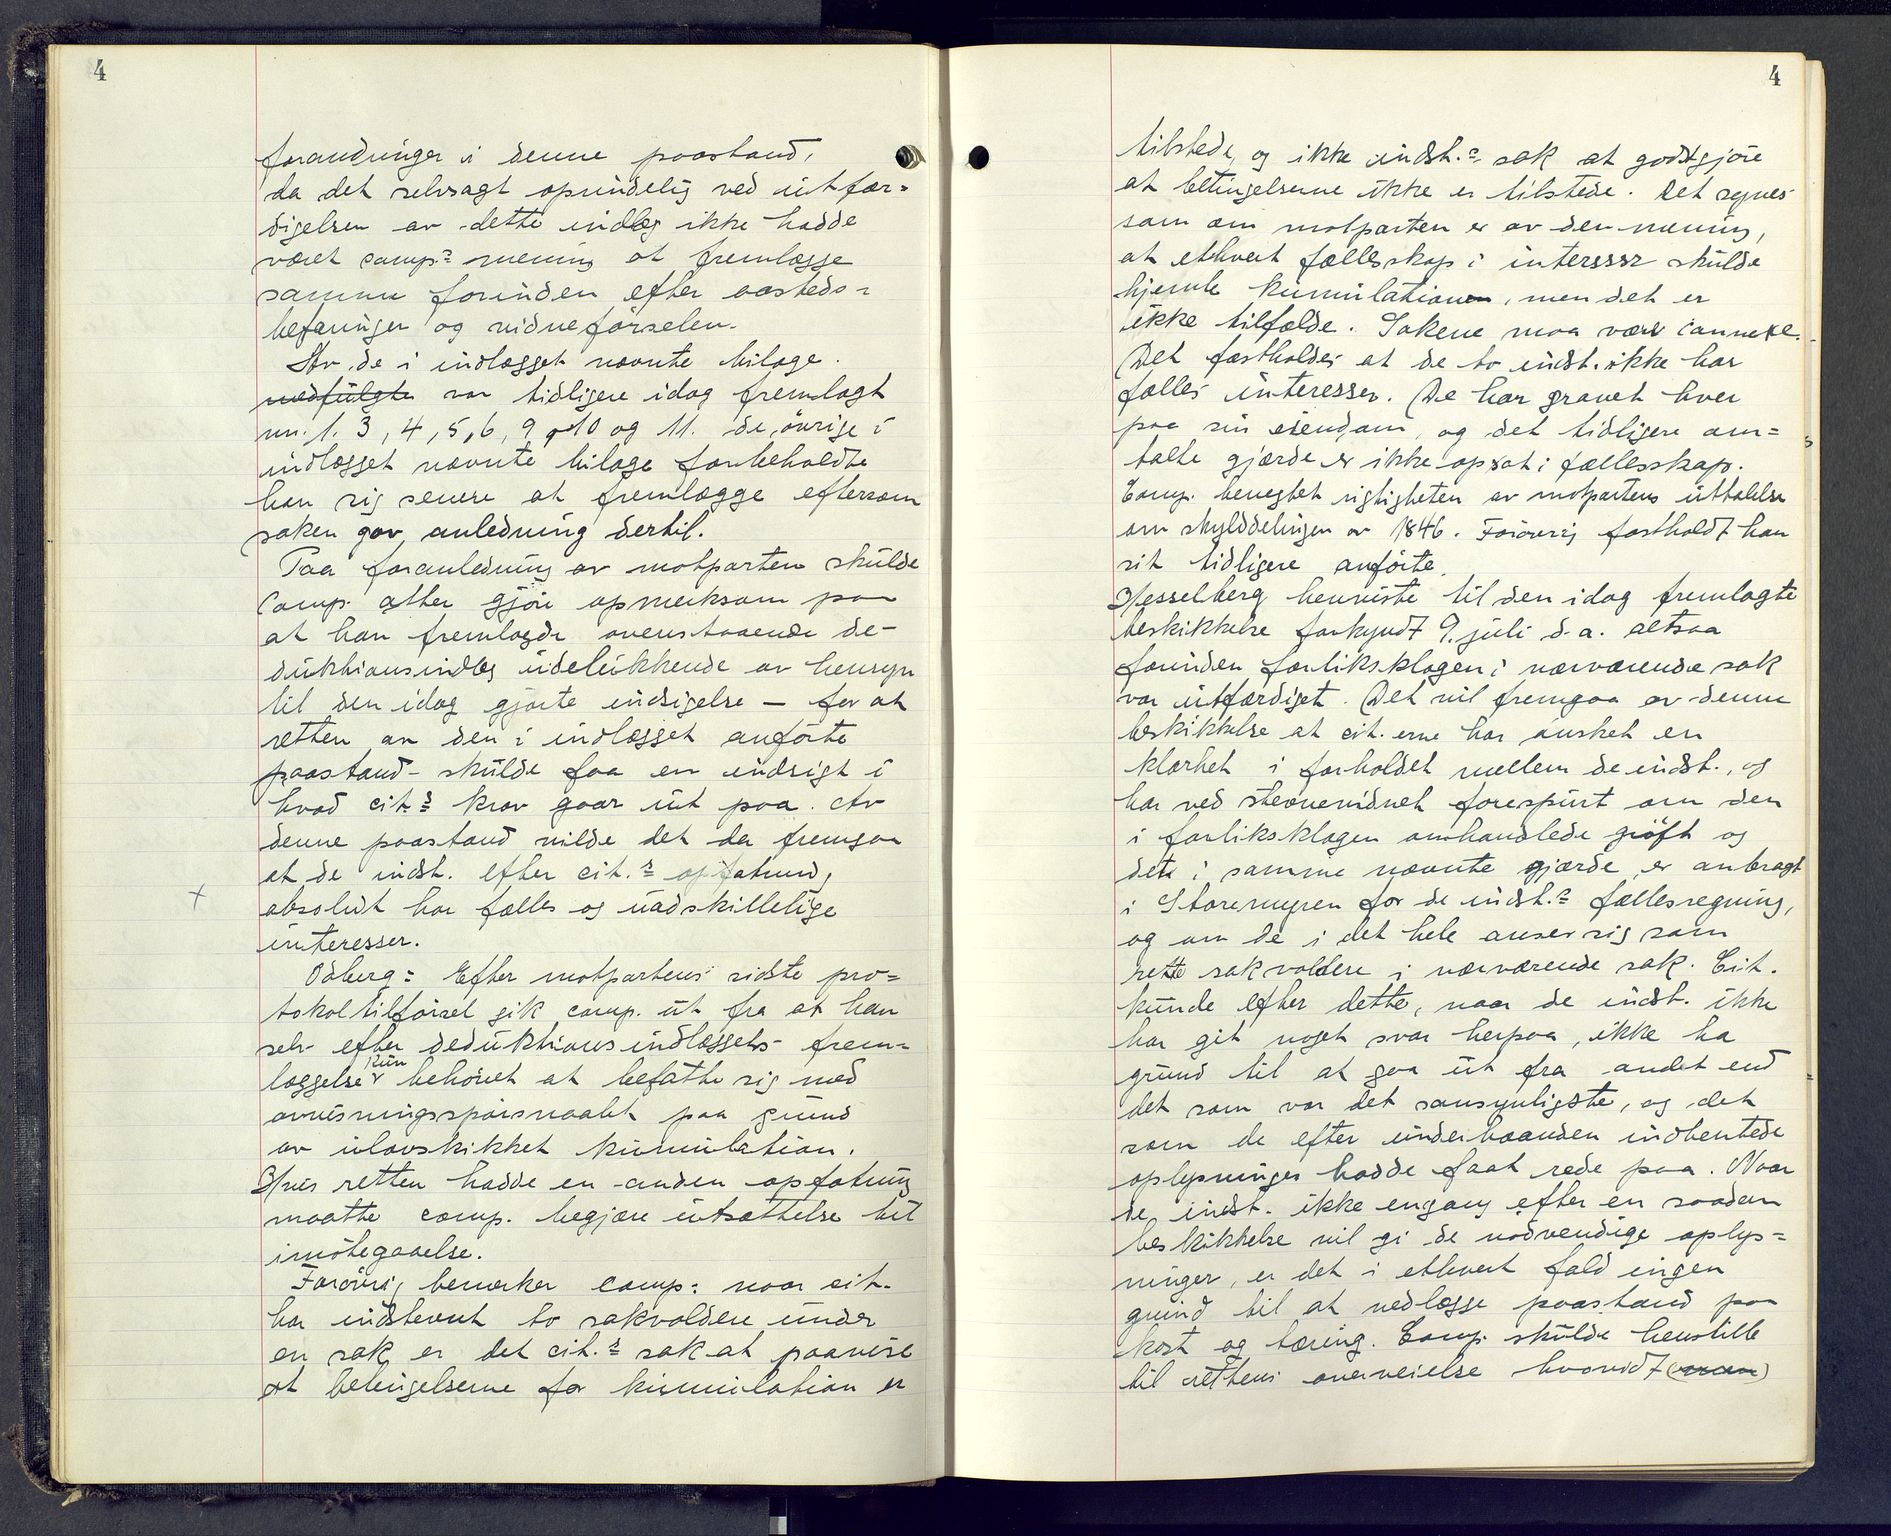 4
forandringer i denne paastand,
da det selvsagt oprindelig ved utfær=
digelsen av dette indlæg ikke hadde
været comp.s mening at fremlægge
samme forinden efter aasteds=
befaringer og vidneførselen.
Av de i indlægget nævnte bilage
medfulgte var tidligere idag fremlagt
nr. 1. 3, 4, 5, 6, 9, 10 og 11. De øvrige i
indlægget nævnte bilage forbeholdte
han sig senere at fremlægge eftersom
saken gav anledning dertil.
Paa foranledning av motparten skulde
Comp. atter gjøre opmerksom paa
at han fremlagde ovenstaaende de-
duktionsindlæg udelukkende av hensyn
til den idag gjorte indsigelse – for at
retten av den i indlægget anførte
paastand – skulde faa en indsigt i
hvad cit.s krav gaar ut paa. Av
denne paastand vilde det da fremgaa
at de indst. efter cit.s opfatning,
absolut har fælles og uadskillelige
interesser.
Odberg: Efter motpartens sidste pro=
tokoltilførsel gik comp. ut fra at han
selv efter deduktionsindlæggets frem=
læggelse kun behøvet at befatte sig med
avvisningsspørsmaalet paa grund
av ulovskikket kumulation.
Hvis retten hadde en anden opfatning
maatte comp. begjære utsættelse til
imøtegaaelse.
Forøvrig bemerker comp: naar cit.
har indstevnt to sakvoldere under
en sak, er det cit.s sak at paavise
at betingelserne for kumulation er
4
tilstede, og ikke indst.s sak at godtgjøre
at betingelserne ikke er tilstede. Det synes
som om motparten er av den mening,
at ethvert fællesskap i interesser skulde
hjemle kumulationen, men det er
ikke tilfælde. Sakene maa være connexe.
Det fastholdes at de to indst. ikke har
fælles interesser. De har gravet hver
paa sin eiendom, og det tidligere om=
talte gjærde er ikke opsat i fællesskap.
Comp. benegtet rigtigheten av motpartens uttalelse
om skylddelingen av 1846. Forøvrig fastholdt han
sit tidligere anførte.
Hesselberg henviste til den idag fremlagte
beskikkelse forkyndt 9. juli d.a. altsaa
forinden forliksklagen i nærværende sak
var utfærdiget. Det vil fremgaa av denne
beskikkelse at cit.erne har ønsket en
klarhet i forholdet mellem de indst., og
har ved stevnevidnet forespurt om den
i forliksklagen omhandlede grøft og
det i samme nævnte gjærde er anbragt
i Storemyren for de indst.s fællesregning,
og om de i det hele anser sig som
rette sakvoldere i nærværende sak. Cit.
kunde efter dette, naar de indst. ikke
har git noget svar herpaa, ikke ha
grund til at gaa ut fra andet end
det som var det sansynligste, og det
som de efter underhaanden indhentede
oplysninger hadde faat rede paa. Naar
de indst. ikke engang efter en saadan
beskikkelse vil gi de nødvendige oplys=
ninger, er det i ethvert fald ingen
grund til at nedlægge paastand paa
kost og tæring. Comp. skulde henstille
til rettens overveielse hvorvidt